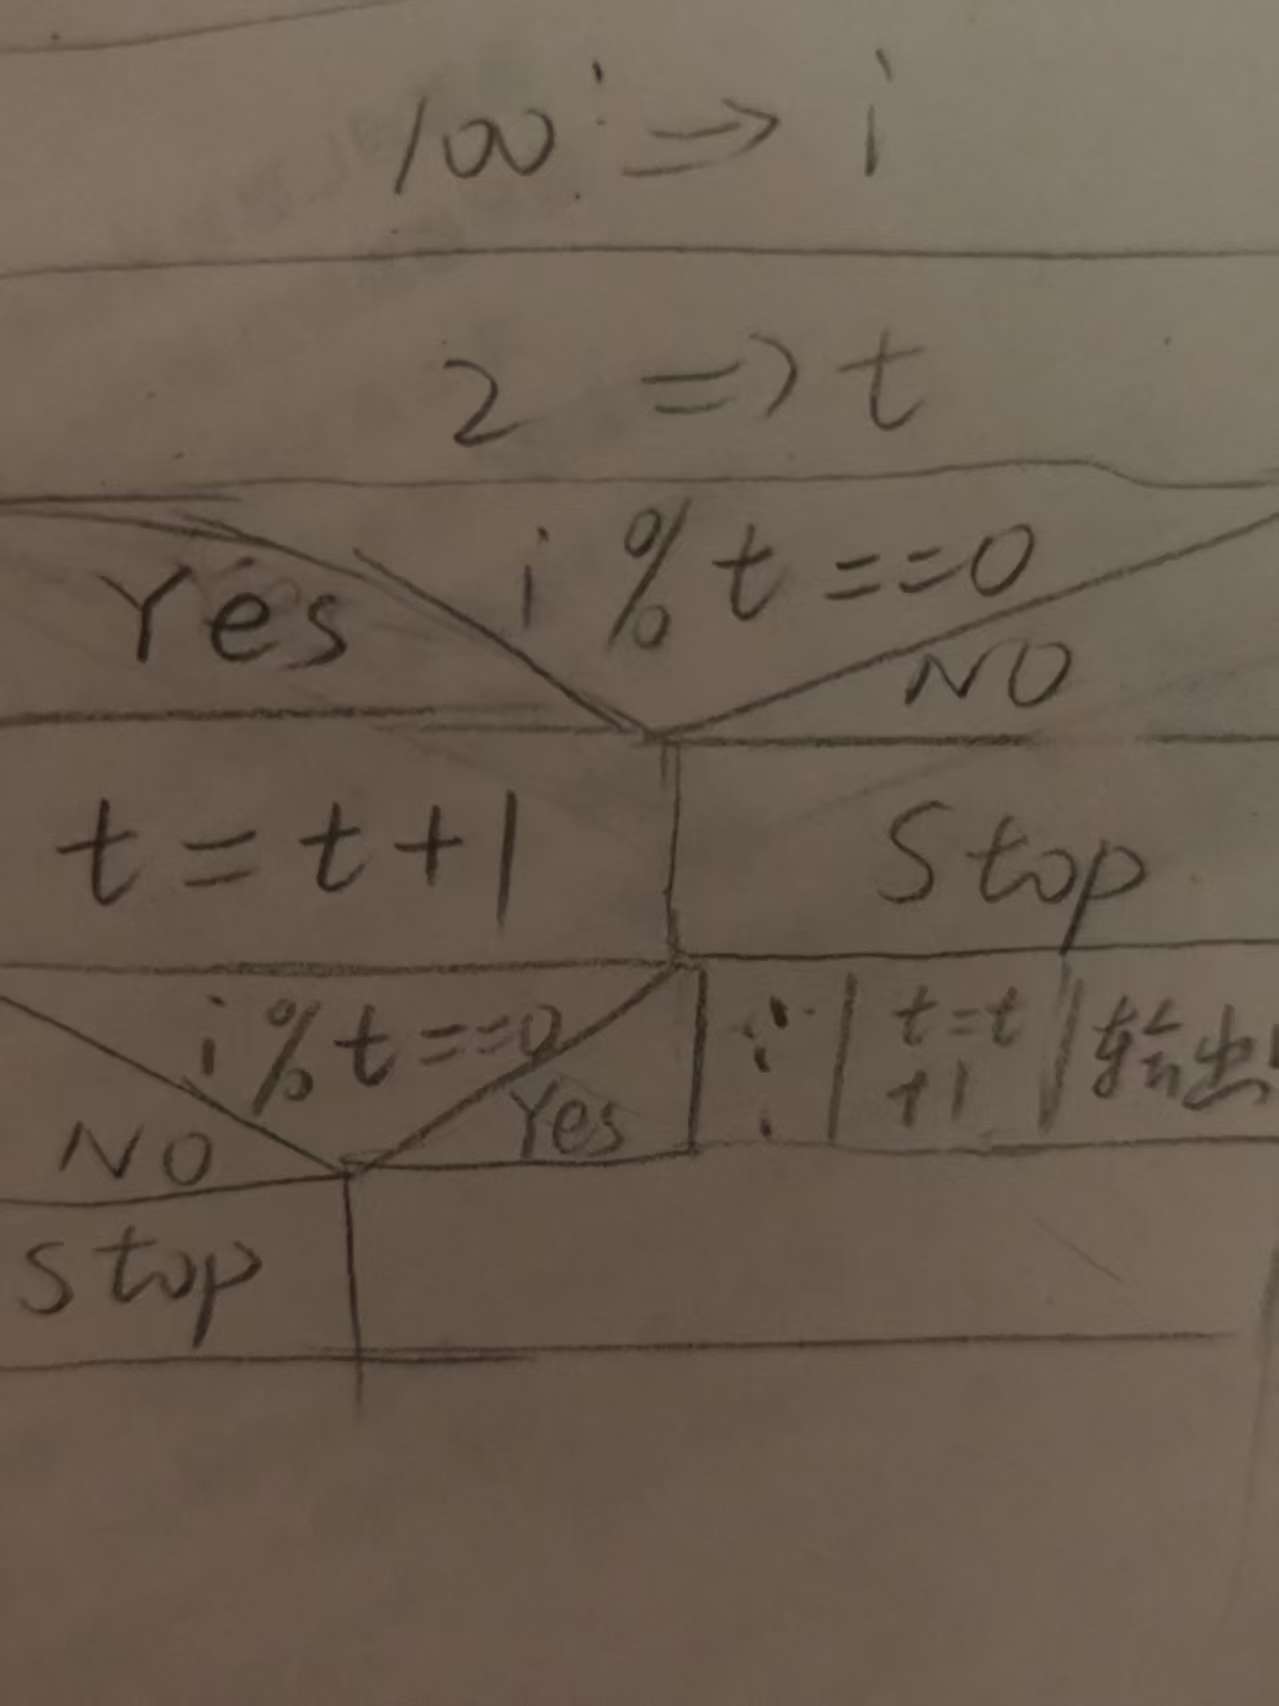 100 ⇒ i
2 ⇒ t
i % t ==0
Yes
NO
t = t+1
Stop
i % t ==0
NO
Yes
⋮
t=t
+1
输出
Stop